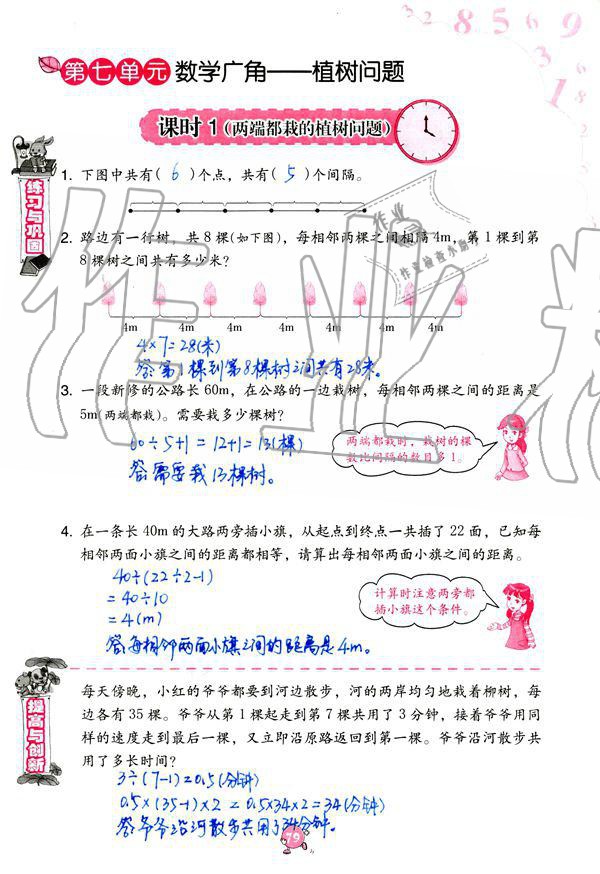 3 2 8 5 6 9
3 6
1 8
第七单元 数学广角——植树问题
课时1（两端都栽的植树问题）
练习与巩固
1. 下图中共有( 6 )个点，共有( 5 )个间隔。
2. 路边有一行树，共8棵(如下图)，每相邻两棵之间相隔4m，第1棵到第
8棵树之间共有多少米？
4m 4m 4m 4m 4m 4m 4m
4×7=28(米)
答:第1棵到第8棵树之间共有28米。
3. 一段新修的公路长60m，在公路的一边栽树，每相邻两棵之间的距离是
5m(两端都栽)。需要栽多少棵树？
60÷5+1=12+1=13(棵)
答:需要栽13棵树。
两端都栽时，栽树的棵
数比间隔的数目多1。
4. 在一条长40m的大路两旁插小旗，从起点到终点一共插了22面，已知每
相邻两面小旗之间的距离都相等，请算出每相邻两面小旗之间的距离。
40÷(22÷2-1)
=40÷10
=4(m)
答:每相邻两面小旗之间的距离是4m。
计算时注意两旁都
插小旗这个条件。
提高与创新
每天傍晚，小红的爷爷都要到河边散步，河的两岸均匀地栽着柳树，每
边各有35棵。爷爷从第1棵起走到第7棵共用了3分钟，接着爷爷用同
样的速度走到最后一棵，又立即沿原路返回到第一棵。爷爷沿河散步共
用了多长时间？
3÷(7-1)=0.5(分钟)
0.5×(35-1)×2=0.5×34×2=34(分钟)
答:爷爷沿河散步共用了34分钟。
79
作业
作业检查小助